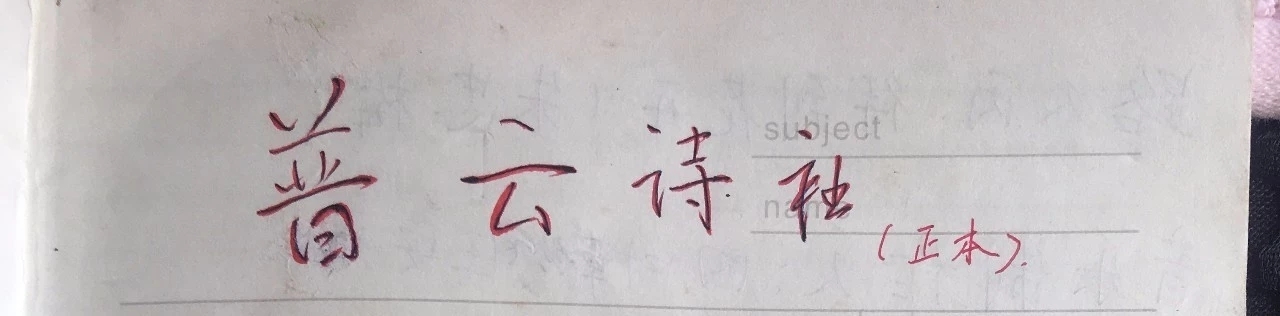 subject
普云诗社
name
（正本）.